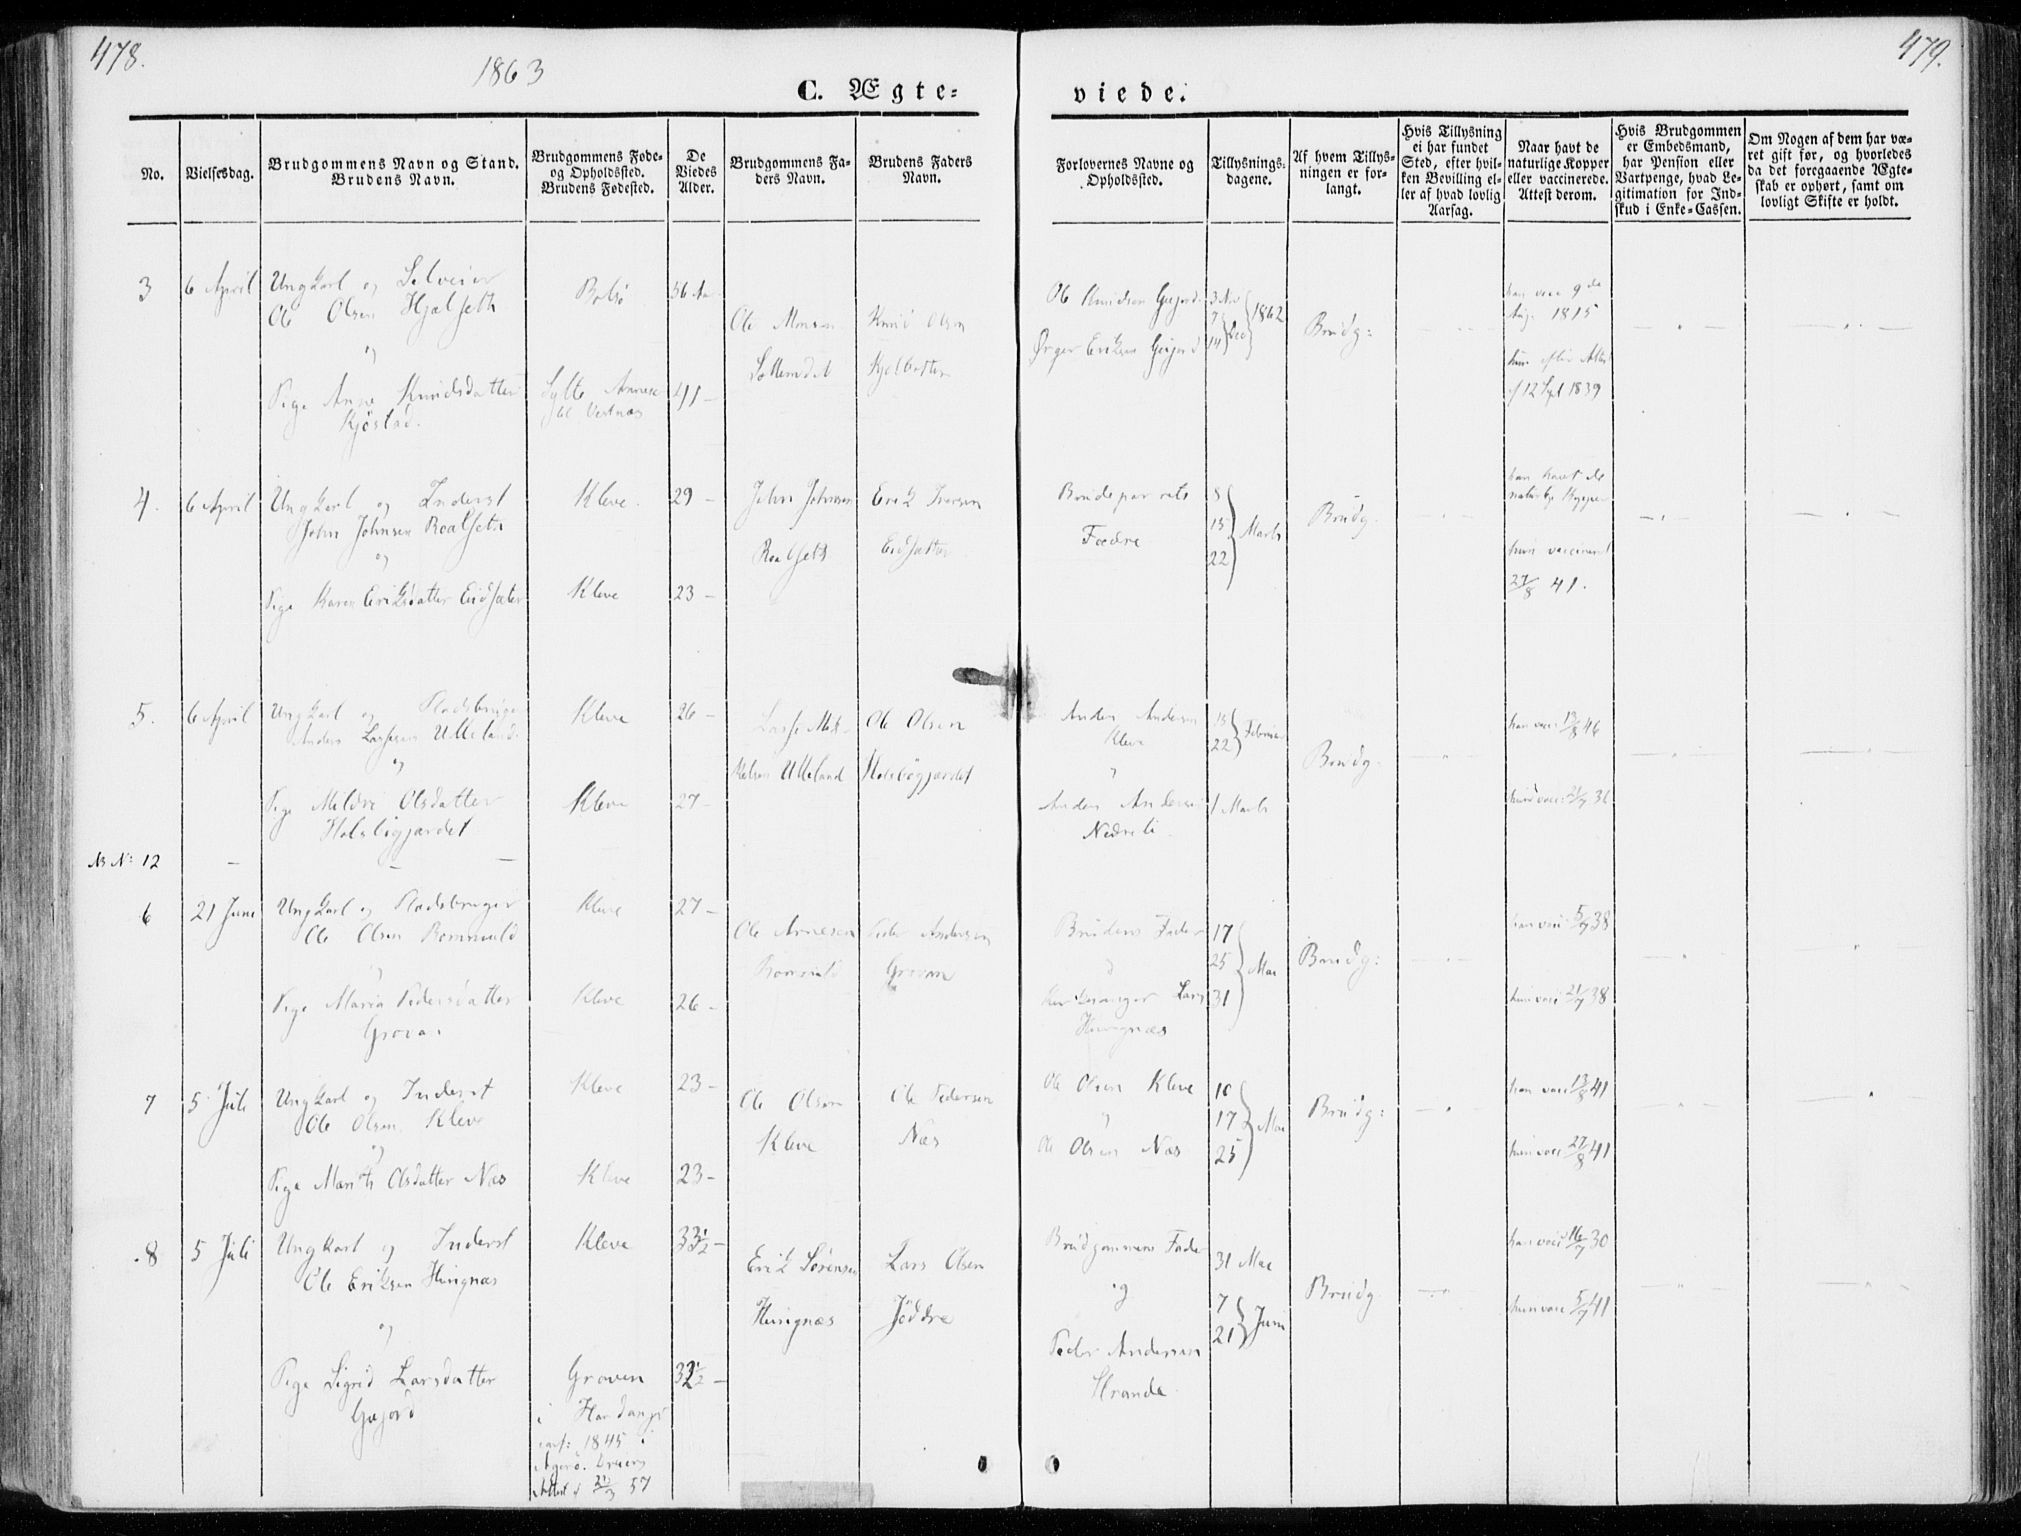 478.
1863
C. Ægte-
viede.
479.
No.
Vielsesdag.
Brudgommens Navn og Stand.
Brudens Navn.
Brudgommens Føde-
og Opholdssted.
Brudens Fødested.
De
Viedes
Alder.
Brudgommens Fa-
ders Navn.
Brudens Faders
Navn.
Forlovernes Navne og
Opholdssted.
Tillysnings-
dagene.
Af hvem Tillys-
ningen er for-
langt.
Hvis Tillysning
ei har fundet
Sted, efter hvil-
ken Bevilling el-
ler af hvad lovlig
Aarsag.
Naar havt de
naturlige Kopper
eller vaccinerede.
Attest derom.
Hvis Brudgommen
er Embedsmand,
har Pension eller
Vartpenge, hvad Le-
gitimation for Ind-
skud i Enke-Cassen.
Om Nogen af dem har væ-
ret gift før, og hvorledes
da det foregaaende Ægte-
skab er ophørt, samt om
lovligt Skifte er holdt.
3
6 April
Ungkarl og Selveier
Ole Olsen Hjelseth
og
Pige Anne Knudsdatter
Kjöstad.
Bolsö
Sylte Annex
til Vestnæs
56 Aar
41 -
Ole
Knud Olsen
Ole Knudsen Gujord
Eriksen Gujord
3 Nov
7
14
Dec
1862
Brudg:
han vacc 9de
Aug. 1815
hun efter Attest
af 12 Sept 1839
4.
6 April
Ungkarl og Inderst
John Johnsen Roalseth
og
Pige Karen Eriksdatter Eidsæter
Kleve.
Kleve
29 -
23 -
John Johnsen
Roalseth
Erik Iversen
Eidsæter
Brudeparrets
Fædre
8
15
22
Marts
Brudg.
han havt de
naturlige Kopper
hun vaccineret
27/8 41.
5.
6 April
Ungkarl og Pladsbruger
Anders Lassesen Ulleland
og
Pige Mildri Olsdatter
Holsbögjærdet
Kleve
Kleve
26 -
27 -
Lasse Mik-
kelsen Ulleland
Ole Olsen
Holsbögjærdet
Anders Andersen
Kleve
Anders Andersen
Nedreli
15
22
Februar
1 Marts
Brudg.
han vacc 13/8 46
hun vacc 21/7 36
NB No: 12
6
21 Juni
Ungkarl og Pladsbruger
Ole Olsen Bommuld
Pige Maria Pedersdatter
Grova
Kleve
Kleve
27 -
26 -
Ole Arnesen
Peder Andersen
Grovan
Brudens Fader
Lars
Hungnæs
17
25
31
Mai
Brudg:
han vacc 5/7 38
hun vacc 21/7 38
7
5 Juli
Ungkarl og Inderst
Ole Olsen Kleve
og
Pige Marith Olsdatter Næs
Kleve
Kleve
23 -
23 -
Ole Olsen
Kleve
Ole Pedersen
Næs
Ole Olsen Kleve
Ole Olsen Næs
10
17
25
Mai
Brudg:
han vacc 13/8 41
hun vacc 27/8 41
8
5 Juli
Ungkarl og Inderst
Ole Eriksen Hungnæs
og
Pige Sigrid Larsdatter
Gujord
Kleve
Graven
i Hardanger
conf: 1845 i
Agerö.
Attest af 21/3 57
33 1/2 -
32 1/2 -
Erik Sörensen
Hungnæs
Lars Olsen
Jöddre
Brudgommens Fader
og
Peder Andersen
Strande
31 Mai
7
21
Juni
Brudg
han vacc 16/7 30
hun vacc 5/7 41